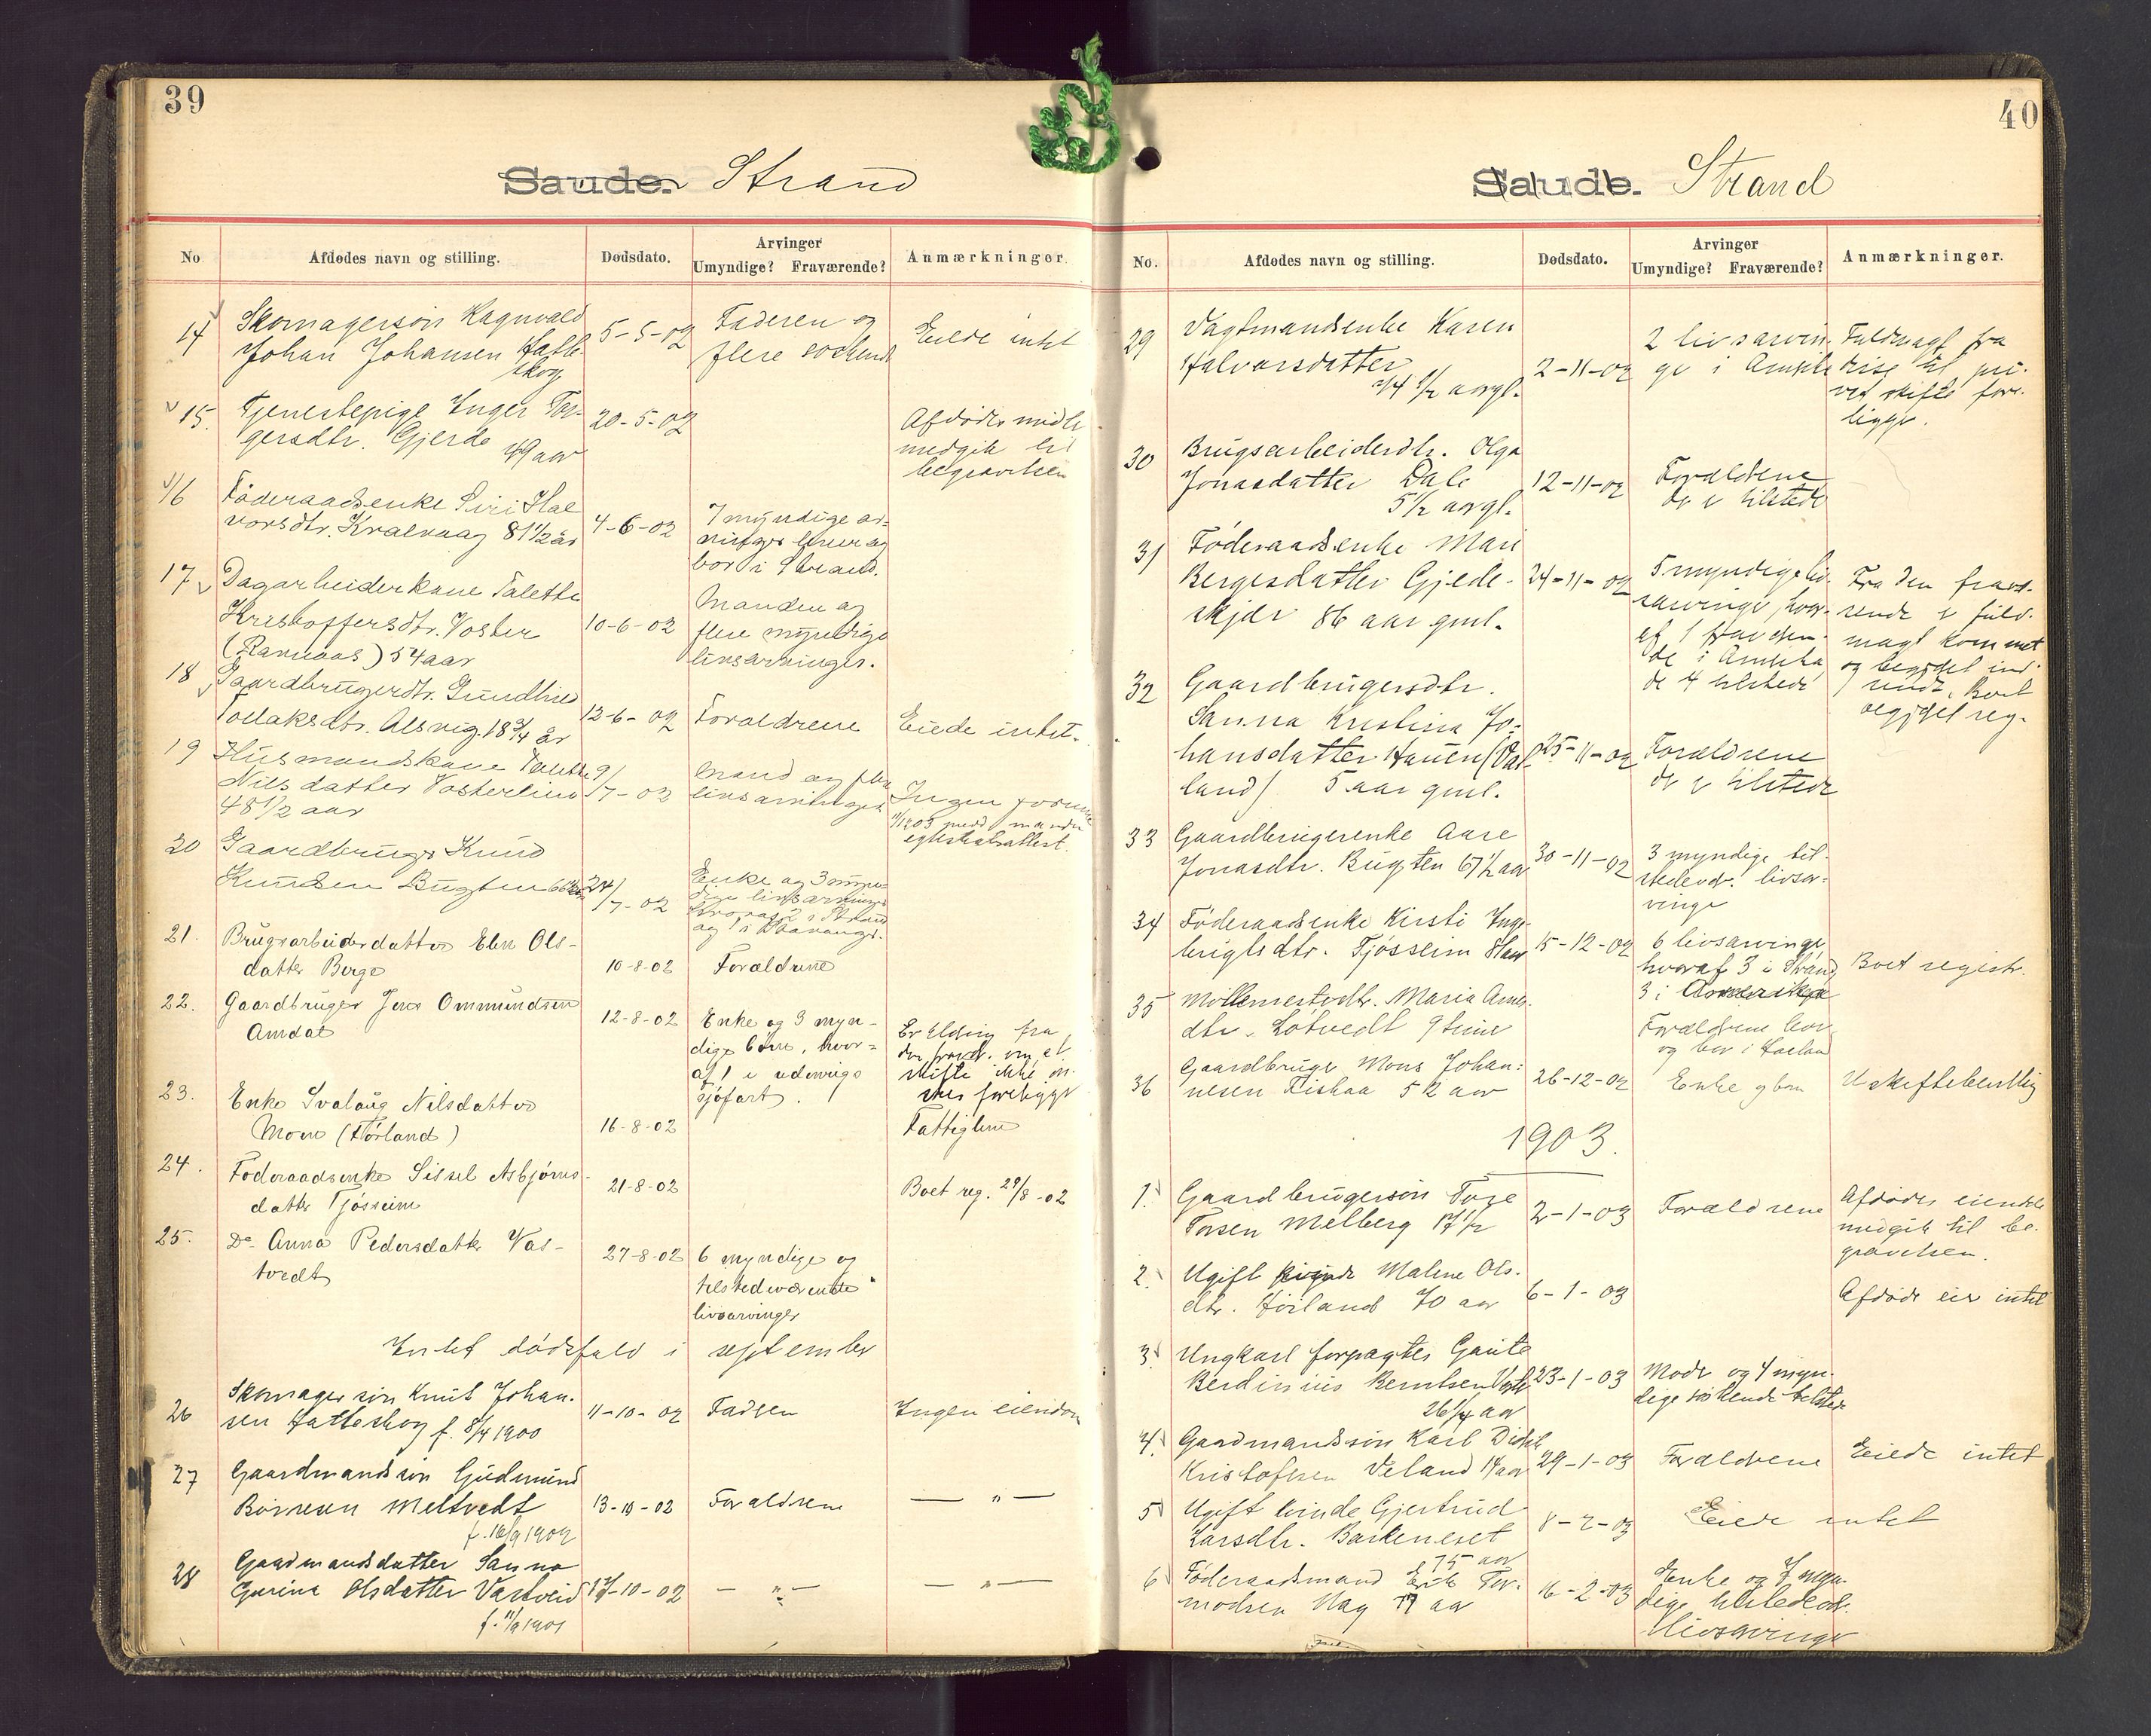 39
Saude. Strand
No
Afdødes navn og stilling.
Dødsdato.
Arvinger
Umyndige? Fraværende?
Anmærkninger.
14
Skomagersøn Ragnvald
Johan Johansen Hatle-
skog
5-5-02
Faderen og
flere søskende
Eiede intet
15.
Tjenestepige Inger Tor-
gersdtr. Gjerde
49 aar
20-5-02
Afdødes midler
medgik til
begravelsen
16
Føderaadsenke Siri Hal
vorsdtr. Kvalvaag 81 1/2 år
4-6-02
7 myndige ar-
vinger
bor i Strand.
17
Dagarbeiderkone Talette
Kristoffersdtr. Voster
(Ramnaas) 54 aar
10-6-02
Manden og
flere myndige
livsarvinger.
18
Gaardbrugerdtr. Gundhild
Tollaksdtr. Alsvig. 18 3/4 år
12-6-02
Forældrene
Eiede intet.
19
Husmandskone Talette
Nilsdatter Vosterlino
48 1/2 aar
9/7-02
Mand og flere
livsarvinger
Ingen formue
egteskabsattest.
20
Gaardbruger Knud
Knudsen Bugten
24/7-02
Enke og 3 myn-
dige livsarvinger
hvoraf 2 i Strand
og 1 i Stavanger.
21.
Brugsarbeiderdatter Elen Ols-
datter Berge
10-8-02
Forældrene
22.
Gaardbruger Jens Ommundsen
Amdal
12-8-02
Enke og 3 myn-
dige børn, hvor-
af 1 i udenrigs
sjøfart.
Erklæring fra
den fravær. om at
skifte ikke øn-
skes foreligger
23.
Enke Svalaug Nilsdatter
Moen (Førland)
16-8-02
Fattiglem
24.
Føderaadsenke Sissel Asbjørns-
datter Tjøsseim
21-8-02
Boet reg. 29/8-02
25.
Do. Anna Pedersdatter Vas-
tvedt
27-8-02
6 myndige og
tilstedeværende
livsarvinger
Intet dødsfald i september
26
Skomagersøn Knut Johan-
sen Hatleskog f. 8/4 1900
11-10-02
Faderen
Ingen eiendom
27
Gaardmandssøn Gudmund
Børresen Meltvedt
f. 16/9 1902
13-10-02
Forældrene
— " —
28
Gaardmandsdatter Sanna
Gurina Olsdatter Vastveid
f. 11/9 1901
17-10-02
— " —
— " —
40
Saude. Strand
No.
Afdødes navn og stilling.
Dødsdato.
Arvinger
Umyndige? Fraværende?
Anmærkninger.
29
Vagtmandsenke Karen
Halvorsdatter
74 1/2 aargl.
2-11-02
2 livsarvin-
ge i Amrika
Fuldmagt fra
disse til pri-
vat skifte fore-
ligger.
30
Brugsarbeiderdtr. Olga
Jonasdatter Dale
5 1/2 aargl.
12-11-02
Forældrene
de er tilstede
31
Føderaadsenke Mari
Bergesdatter Gjede-
skjær 86 aar gml.
24-11-02
5 myndige liv-
sarvinge, hvor-
af 1 fraværen-
de i Amrika,
de 4 tilstede
Fra den fravæ-
rende er fuld-
magt kommet
og begjæret ind-
sendt. Boet
begjæret reg.
32
Gaardbrugersdtr.
Sanna Kristina Jo-
hansdatter Hauen (Dal-
land) 5 aar gml.
25-11-02
Forældrene
de er tilstede
33
Gaardbrugerenke Aase
Jonasdtr. Bugten 67 1/2 aar
30-11-02
3 myndige til-
stedevær. livsar-
vinge
34
Føderaadsenke Kirsti Inge-
brigtsdtr. Tjøsseim
15-12-02
6 livsarvinge,
hvoraf 3 i Strand,
3 i Amerika
Boet registr.
35
Møllemesterdtr. Maria
dtr. Løtvedt 9 timer
Forældrene lever
og bor i
36
Gaardbruger Mons Johan-
nesen Fiskaa 52 aar
26-12-02
Enke og børn
Uskiftebevillig
1903.
1.
Gaardbrugersøn Tore
Torsen Melberg 17 1/2
2-1-03
Forældrene
Afdødes eiendele
medgik til be-
gravelsen.
2.
Ugift kvinde Malene Ols-
dtr. Høiland 70 aar
6-1-03
Afdøde eier intet
3.
Ungkarl forpagter Gaute
Berdinius Berntsen
26 1/4 aar
23-1-03
Moder og 4 myn-
dige søskende tilstede
4.
Gaardmandssøn Karl
Kristofersen Veland 14 aar
29-1-03
Forældrene
Eiede intet
5
Ugift kvinde Gjertrud
Larsdtr. Barkeneset
75 aar
8-2-03
Eiede intet
6
Føderaadsmand Erik Tor-
modsen Hag 77 aar
16-2-03
Enke og 7 myn-
dige tilstedevær.
livsarvinge